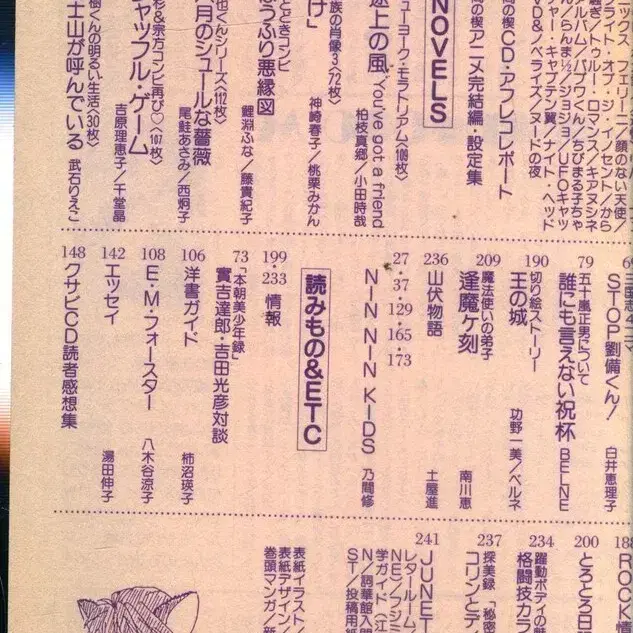 ニックス／フェリーニ
ライト・オブ・ジ・イノセント／から
騒ぎ／トゥルー・ロマンス／キアヌシネ
アルバム／パプワくん／ちびまる子ちゃ
ん／らんま½／ジョジョ／UFOキャッ
チャー／キャプテン翼／ナイト・ヘッド
VD＆ノベライズ／ヌードの夜
間の楔CD・アフレコレポート
間の楔アニメ完結編・設定集
NOVELS
ニューヨーク・モラトリアム〈109枚〉
途上の風 You've got a friend
柏枝真郷／小田時哉
族の肖像3〈72枚〉
け」
神崎春子／桃栗みかん
とどきコンビ
ようふり悪縁図
鯉淵ふな／藤貴紀子
也くんシリーズ〈112枚〉
月のシュールな薔薇
尾鮭あさみ／西炯子
杉＆宗方コンビ再び♡〈107枚〉
ャッフル・ゲーム
吉原理恵子／千堂晶
樹くんの明るい生活〈30枚〉
士山が呼んでいる
武石りえこ
三国志4コマ
STOP劉備くん！
白井恵理子
79
五十嵐正男について
誰にも言えない祝杯
BELNE
190
切り絵ストーリー
王の城
功野一美／ベルネ
209
魔法使いの弟子
逢魔ヶ刻
南川恵
236
山伏物語
土屋進
27・37・129・165・173
NIN NIN KIDS
乃間修
読みもの&ETC
199・233
情報
73
「本朝美少年録」
實吉達郎・吉田光彦対談
106
洋書ガイド
柿沼瑛子
108
E・M・フォースター
八木谷涼子
142
エッセイ
湯田伸子
148
クサビCD読者感想集
188
ROCK情
200
とろとろ日
234
躍動ボディの
格闘技カラ
237
探美録「秘密
コリンとディ
241
JUNET
レタールーム／
NE／フジミ
学ガイド（江
N／詞華館入門
ST／投稿用紙
表紙イラスト／
表紙デザイン／
巻頭マンガ／新